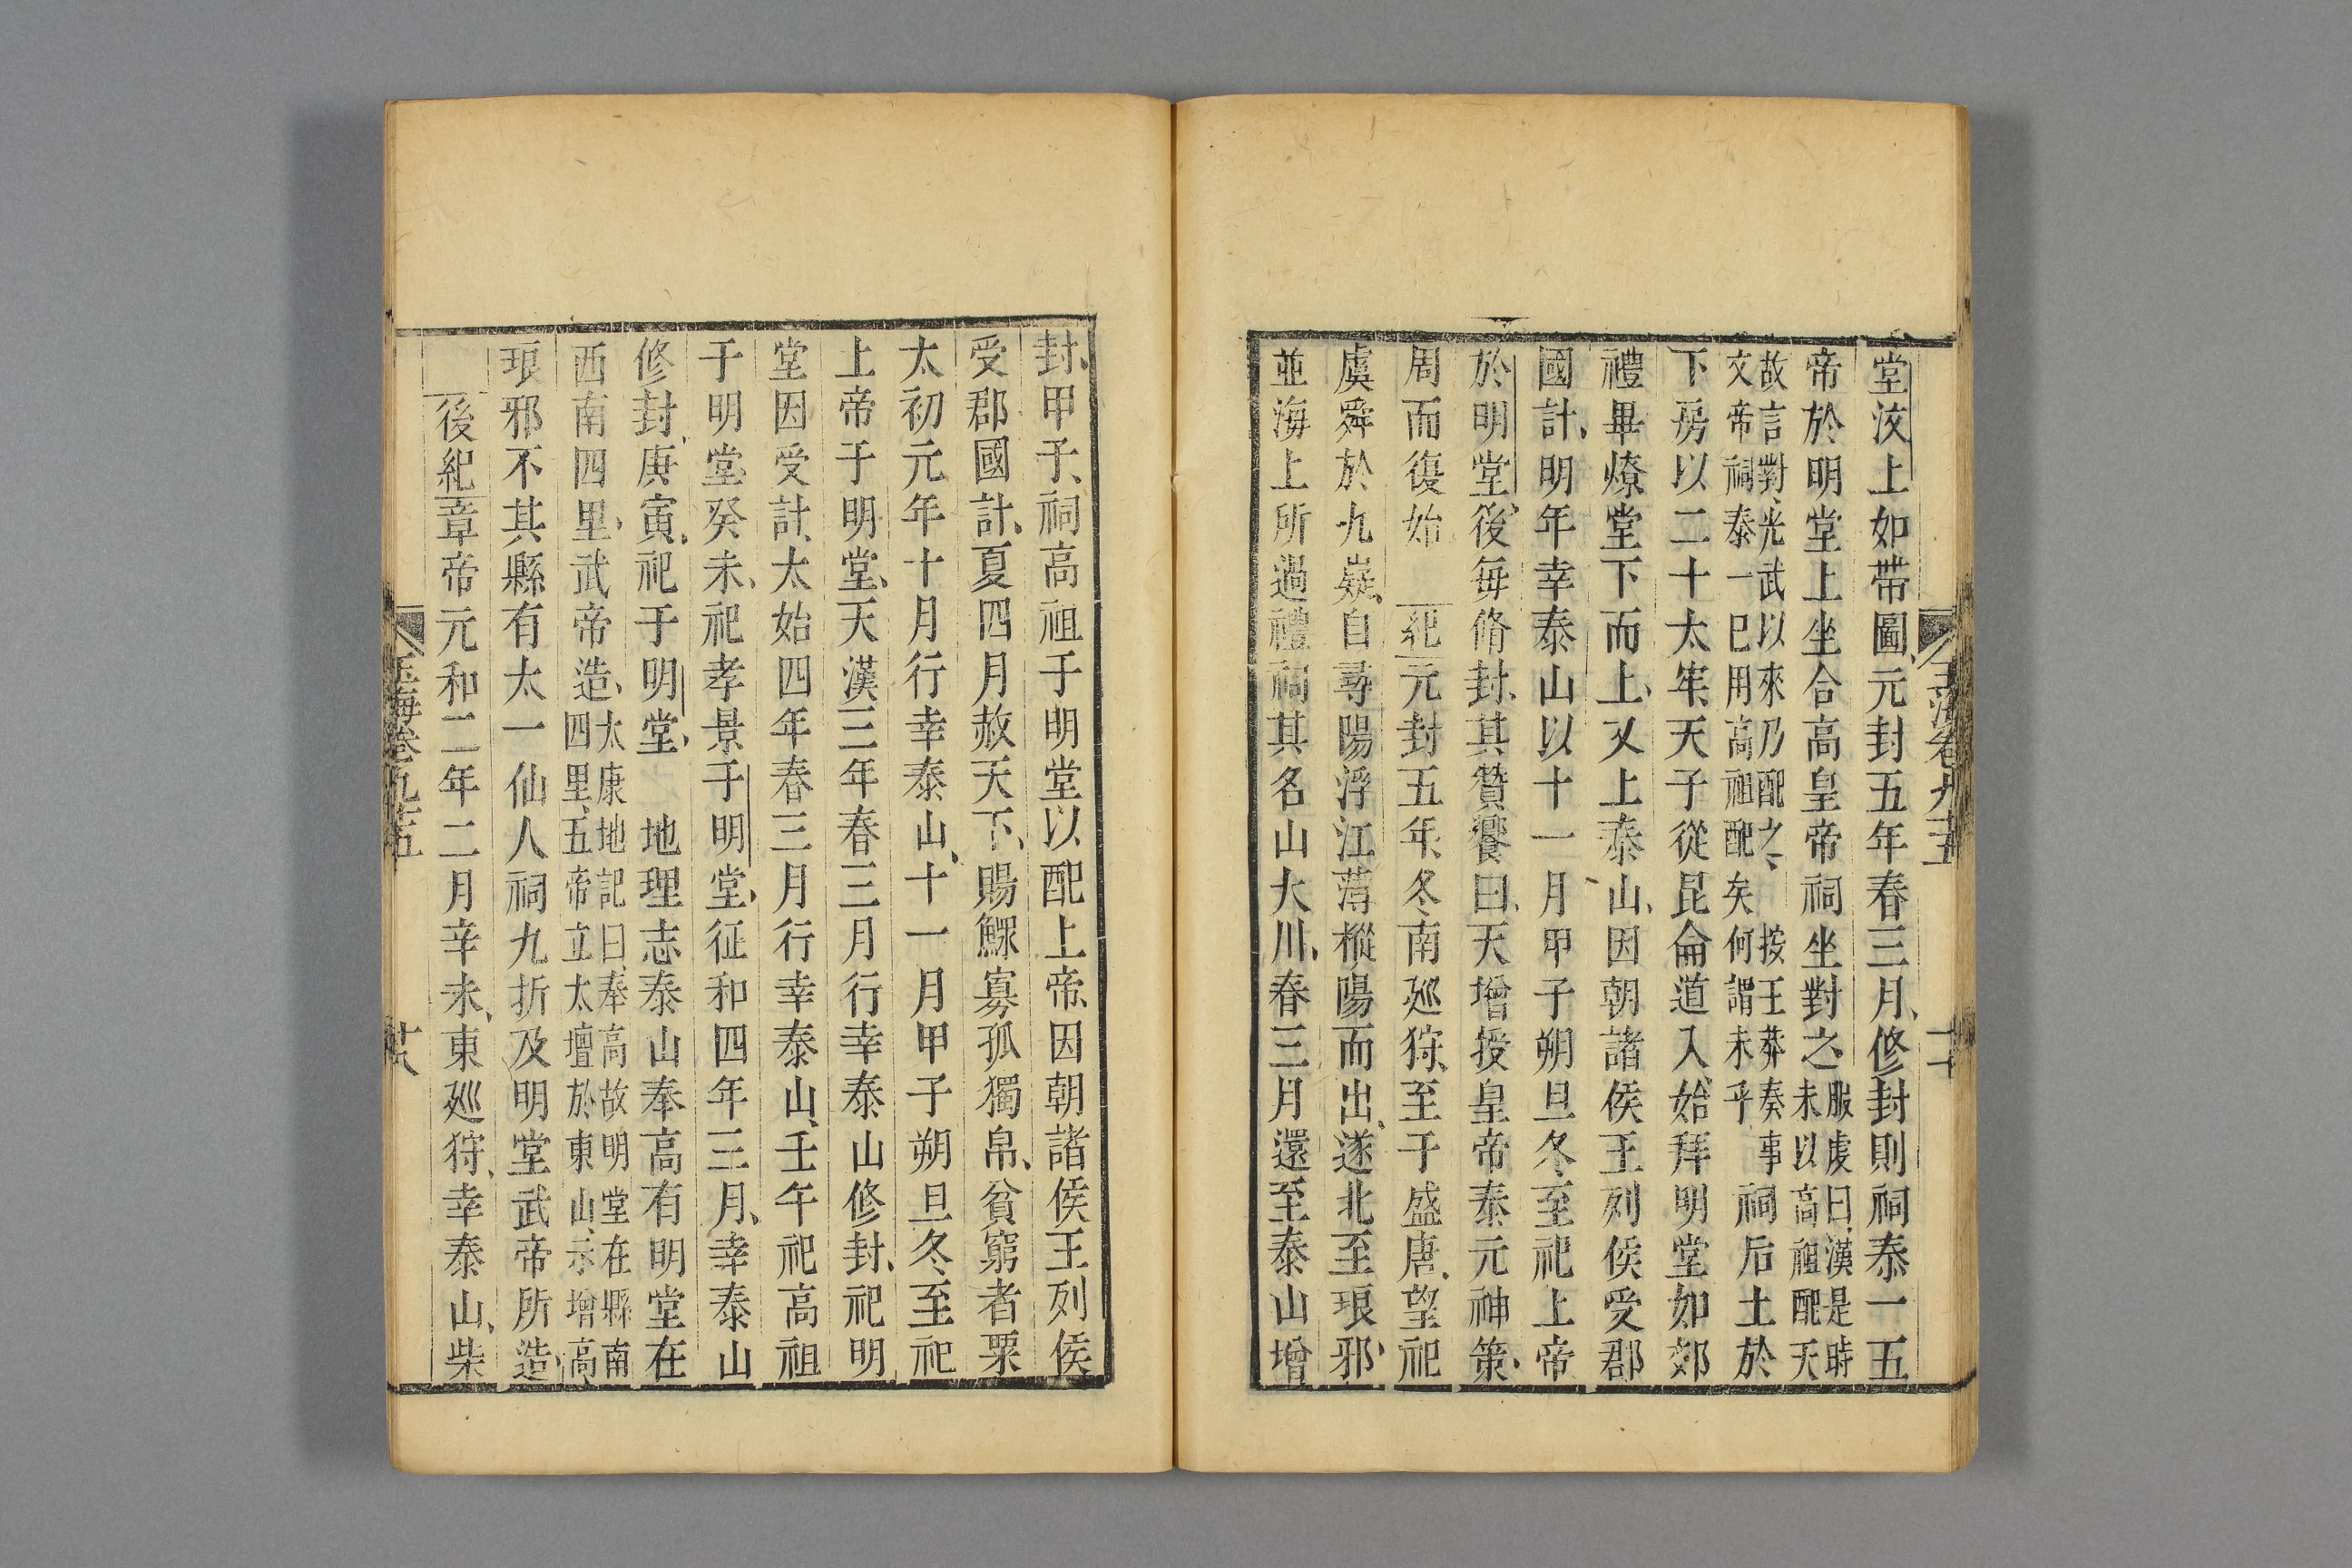 堂汶上如帶圖元封五年春三月修封則祠泰一五
帝於明堂上坐合高皇帝祠坐對之服虔曰漢是時
未以高祖配天
故言對光武以來乃配之按王莽奏事
文帝祠泰一已用高祖配矣何謂未乎祠后土於
下房以二十太牢天子從昆侖道入始拜明堂如郊
禮畢燎堂下而上又上泰山因朝諸侯王列侯受郡
國計明年幸泰山以十一月甲子朔旦冬至祀上帝
於明堂後每脩封其贊饗曰天增授皇帝泰元神策
周而復始 紀元封五年冬南廵狩至于盛唐望祀
虞舜於九嶷自尋陽浮江薄樅陽而出遂北至琅邪
並海上所過禮祠其名山大川春三月還至泰山增
封甲子祠高祖于明堂以配上帝因朝諸侯王列侯
受郡國計夏四月赦天下賜鰥寡孤獨帛貧窮者粟
太初元年十月行幸泰山十一月甲子朔旦冬至祀
上帝于明堂天漢三年春三月行幸泰山修封祀明
堂因受計太始四年春三月行幸泰山壬午祀高祖
于明堂癸未祀孝景于明堂征和四年三月幸泰山
修封庚寅祀于明堂 地理志泰山奉高有明堂在
西南四里武帝造太康地記曰奉高故明堂在縣南
四里五帝立太壇於東山示增高
琅邪不其縣有太一仙人祠九折及明堂武帝所造
後紀章帝元和二年二月辛未東廵狩幸泰山柴
玉海卷九十五
廿八